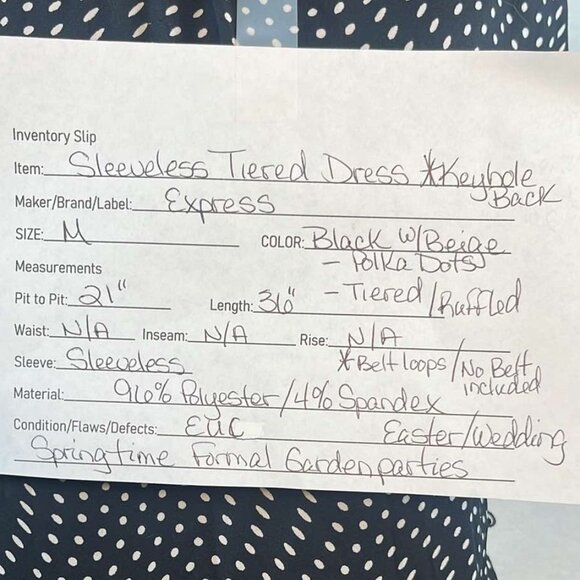 Inventory Slip
Item: Sleeveless Tiered Dress *Keyhole
Back
Maker/Brand/Label: Express
SIZE: M COLOR: Black w/Beige
- Polka Dots
Measurements
- Tiered/Ruffled
Pit to Pit: 21" Length: 36"
Waist: N/A Inseam: N/A Rise: N/A
Sleeve: Sleeveless *Belt loops/No Belt
included
Material: 96% Polyester/4% Spandex
Condition/Flaws/Defects: EUC Easter/Wedding
Springtime Formal Garden parties